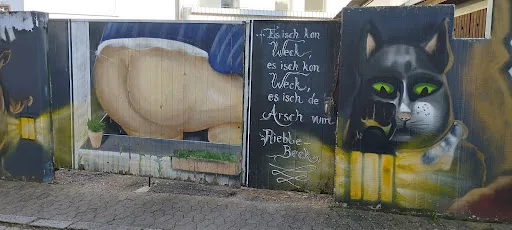 Es isch kon
Weck,
es isch kon
Weck,
es isch de
Arsch vum
Rieble-
Beck